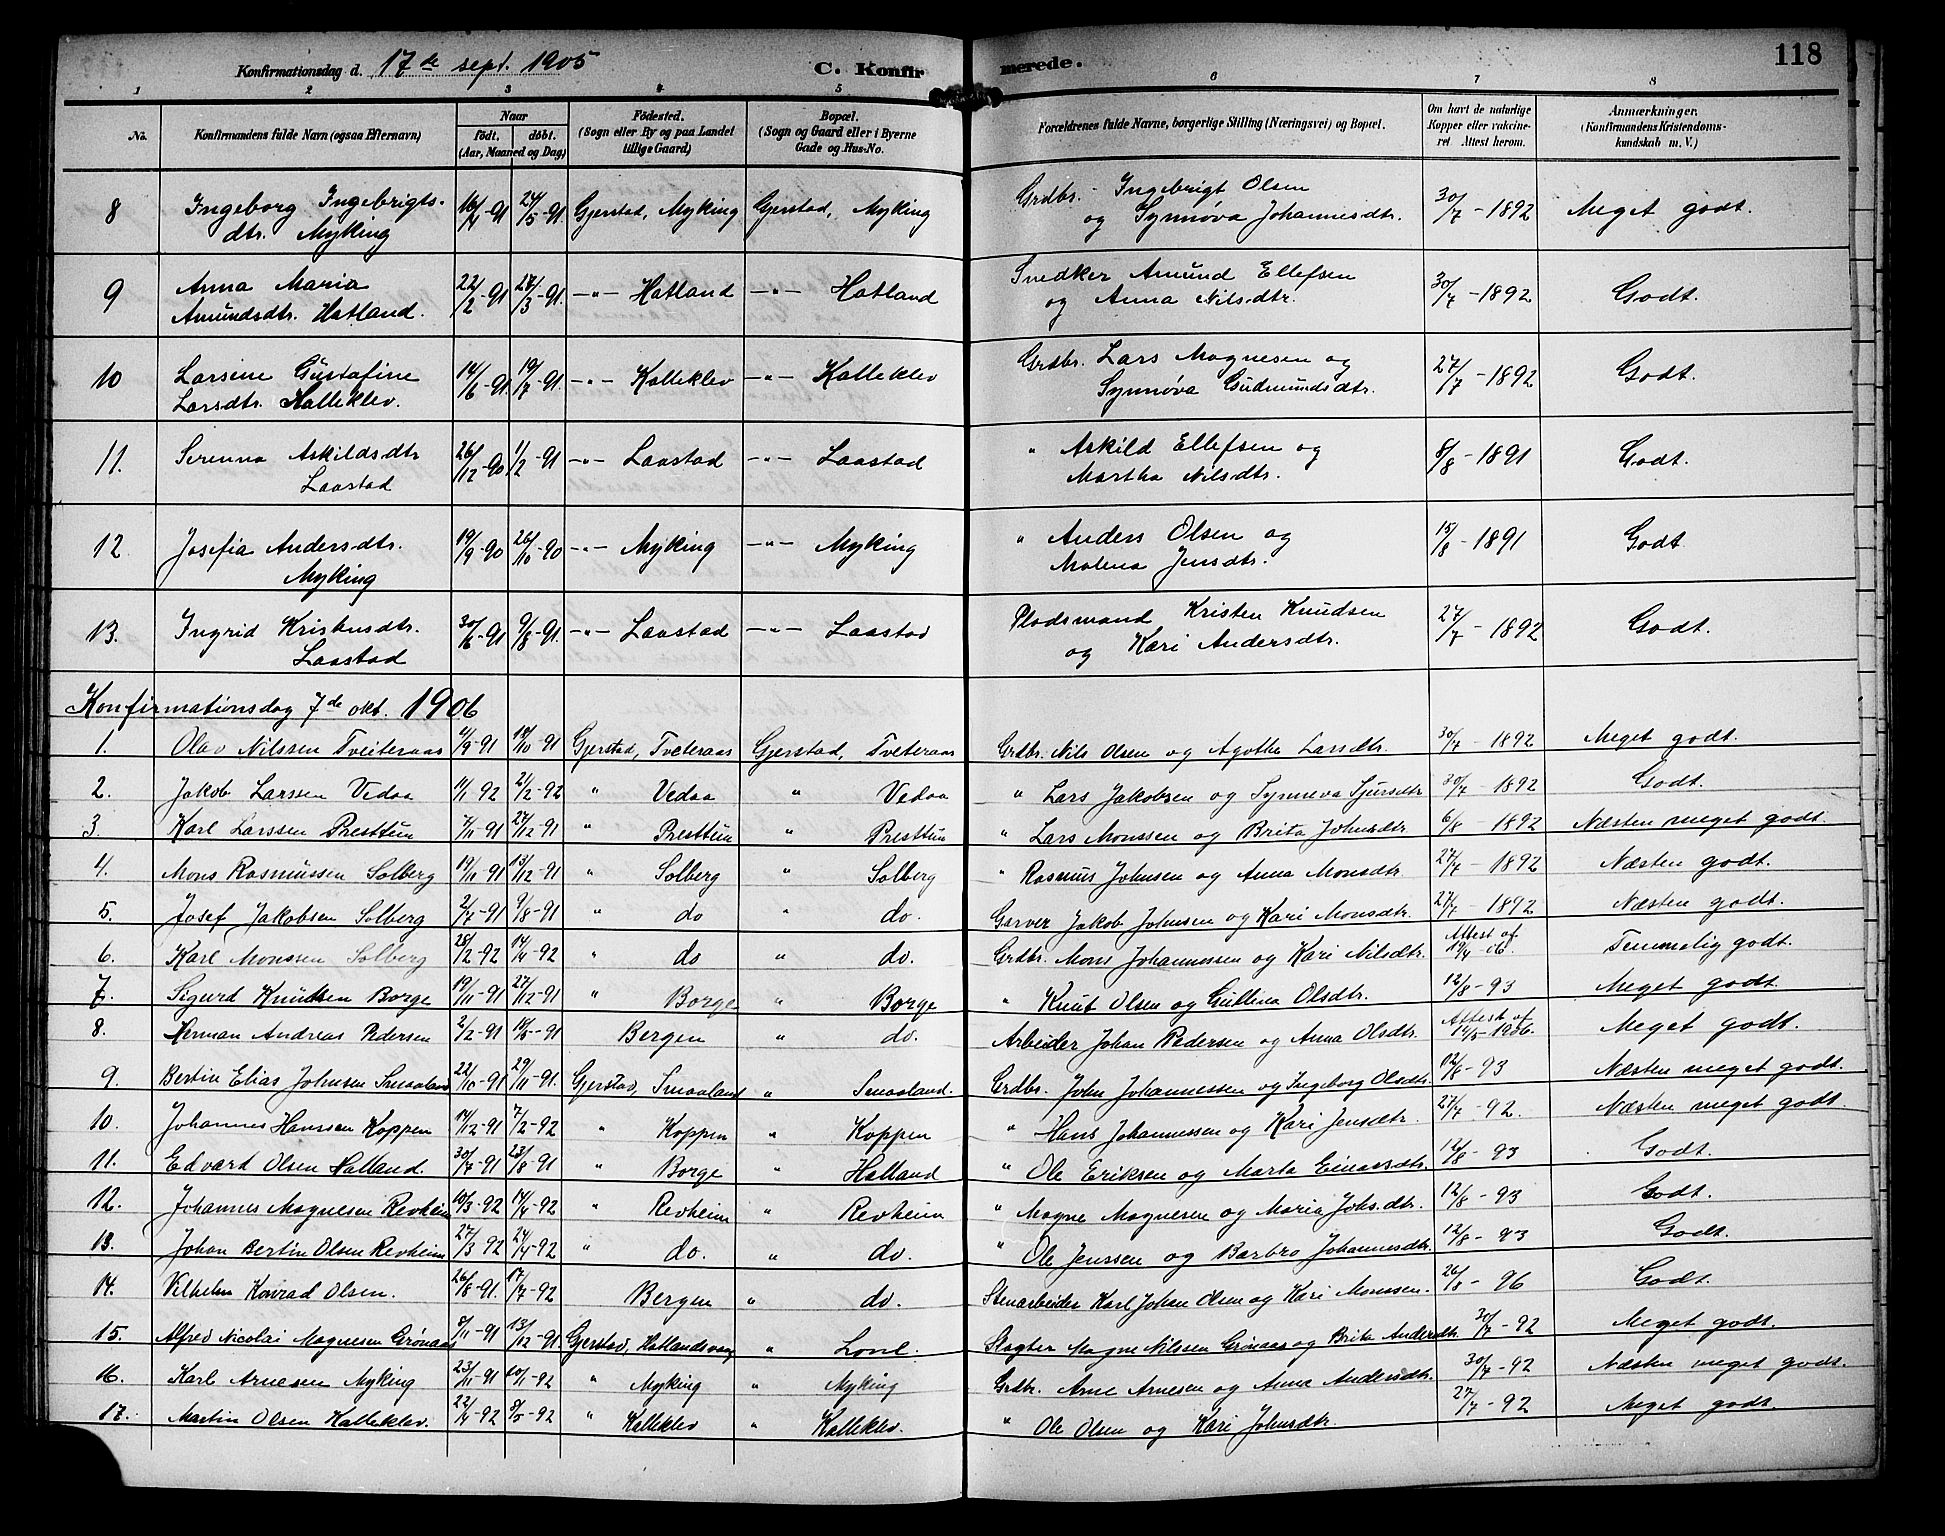 118
Konfirmationsdag d. 17de sept. 1905 C. Konfirmerede.
1 2 3 4 5 6 7 8
No. Konfirmandens fulde Navn (ogsaa Efternavn) Naar født, døbt. (Aar, Maaned og Dag) Födested. (Sogn eller By og paa Landet tillige Gaard) Bopæl. (Sogn og Gaard eller i Byerne Gade og Hus-No. Forældrenes fulde Navne, borgerlige Stilling (Næringsvei) og Bopæl. Om havt de naturlige Kopper eller vakcineret. Attest herom. Anmærkninger. (Konfirmandens Kristendomskundskab m. V.)
8 Ingeborg Ingebrigts- 16/4-91 24/5-91 Gjerstad, Myking Gjerstad, Myking Grdbr. Ingebrigt Olsen 30/7-1892 Meget godt.
dtr. Myking og Synnøva Johannesdtr.
9 Anna Maria 22/2-91 27/3-91. -"- Hatland -"- Hatland Snedker Amund Ellefsen 30/7-1892 Godt.
Amundsdtr. Hatland. og Anna Nilsdtr.
10 Larsine Gustafine 14/6-91. 19/7-91. -"- Kalleklev -"- Kalleklev Grdbr. Lars Magnesen og 27/7-1892 Godt.
Larsdtr. Kalleklev. Synnøva Gudmundsdtr.
11. Serenna Askildsdtr 26/12-90 1/2-91 -"- Laastad -"- Laastad " Askild Ellefsen og 8/8-1891 Godt.
Laastad Martha Nilsdtr.
12 Josefia Andersdtr. 19/9-90 26/10-90 -"- Myking -"- Myking " Anders Olsen og 15/8-1891 Godt.
Myking Malena Jensdtr.
13. Ingrid Kristensdtr. 30/6-91 9/8-91. -"- Laastad -"- Laastad Pladsmand Kristen Knudsen 27/7-1892 Godt.
Laastad og Kari Andersdtr.
Konfirmationsdag 7de okt. 1906
1. Olav Nilssen Tveiteraas 4/9-91 18/10-91 Gjerstad, Tveteraas Gjerstad, Tveteraas Grdbr. Nils Olsen og Agathe Larsdtr. 30/7-1892 Meget godt.
2. Jakob Larssen Vedaa 11/1 92 21/2-92 " Vedaa " Vedaa " Lars Jakobsen og Synneva Sjursdtr 30/7-1892 Godt.
3. Karl Larssen Presttun 7/11-91 27/12-91 " Presttun " Presttun " Lars Monssen og Brita Johnsdtr. 6/8-1892 Næsten meget godt.
4. Mons Rasmussen Solberg 19/11-91 13/12-91 " Solberg " Solberg " Rasmus Johnsen og Anna Monsdtr. 27/7-1892 Næsten godt.
5. Josef Jakobsen Solberg 2/7-91 9/8-91 " do " do. Garver Jakob Johnsen og Kari Monsdtr. 27/7-1892 Næsten godt.
6. Karl Monssen Solberg 28/2-92 14/4-92 " do " do. Grdbr. Mons Johannessen og Kari Nilsdtr. Attest af 19/4-06. Temmelig godt.
7. Sigurd Knudsen Borge 19/11-91 27/12-91 " Borge " Borge " Knut Olsen og Gullina Olsdtr. 12/8-93 Meget godt.
8. Herman Andreas Pedersen 2/2-91 18/5-91 Bergen " do. Arbeider Johan Pedersen og Anna Olsdtr. Attest af 14/5-1906. Meget godt.
9. Bertin Elias Johnsen Smaaland 22/10-91 29/11-91. Gjerstad, Smaaland " Smaaland. Grdbr. John Johannessen og Ingeborg Olsdtr. 12/8-93 Næsten meget godt.
10. Johannes Hanssen Koppen 14/12-91 7/2-92 " Koppen " Koppen " Hans Johannessen og Kari Jensdtr. 27/7-92. Næsten meget godt.
11. Edvard Olsen Hatland. 30/7-91 23/8-91 " Borge " Hatland " Ole Eriksen og Marta Einarsdtr. 12/8-93 Godt.
12. Johannes Magnesen Revheim 10/3-92 14/4-92 " Revheim " Revheim " Magne Magnesen og Maria Johs.dtr. 12/8-93 Godt.
13. Johan Bertin Olsen Revheim 27/3 92 24/4-92 " do. " do. " Ole Jenssen og Barbro Johannesdtr. 12/8-93 Godt.
14. Vilhelm Konrad Olsen. 26/8-91. 17/7-92 Bergen " do. Stenarbeider Karl Johan Olsen og Kari Monssen. 26/8-96 Godt.
15. Alfred Nicolai Magnesen Grønaas 8/11-91 13/12-91 Gjerstad, Hatlandsvaag " Lovl. Slagter Magne Nilssen Grønaas og Brita Andersdtr. 30/7-92 Meget godt.
16. Karl Arnesen Myking 23/11-91 10/1-92 " Myking " Myking Grdbr. Arne Arnesen og Anna Andersdtr. 30/7-92 Næsten meget godt.
17. Martin Olsen Kalleklev. 22/4-92 8/5-92 " Kalleklev " Kalleklev. " Ole Olsen og Kari Johnsdtr. 27/7-92 Meget godt.